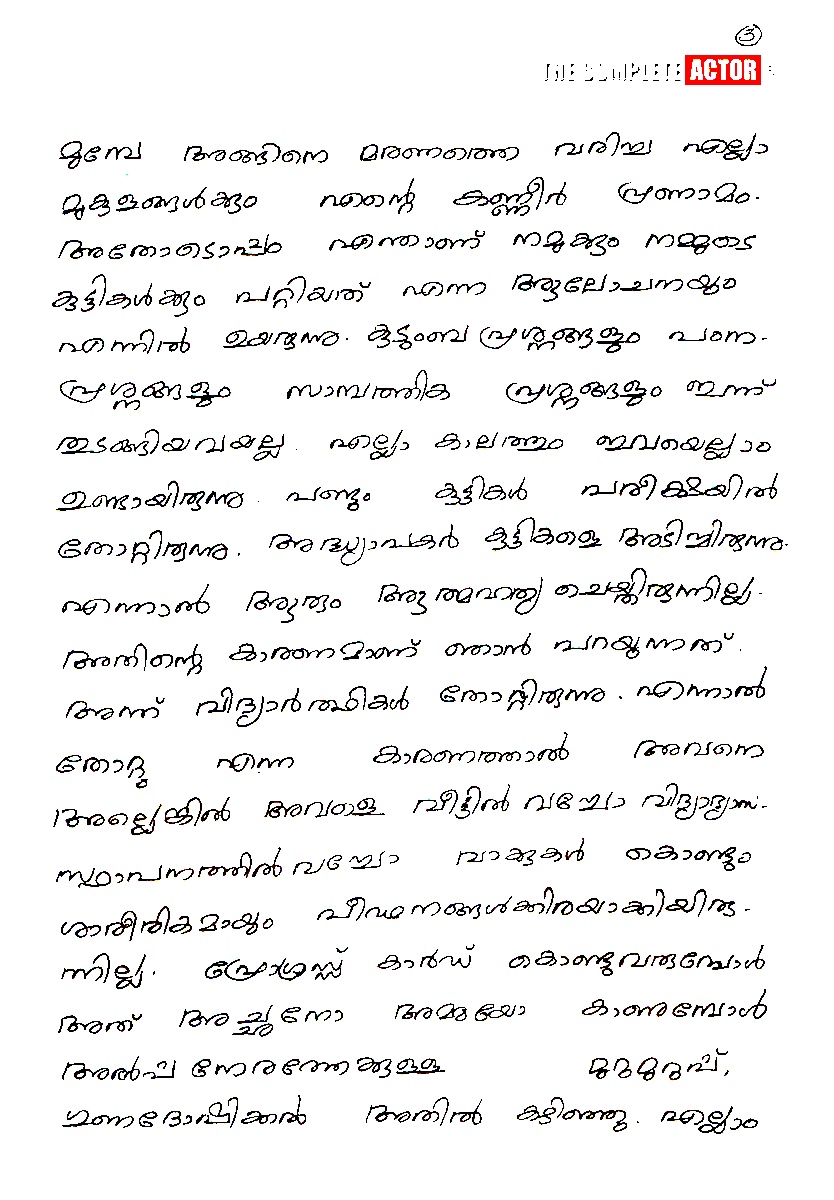 3
THE COMPLETE ACTOR
മുമ്പേ അങ്ങിനെ മരണത്തെ വരിച്ച എല്ലാ
മുകുളങ്ങൾക്കും എന്റെ കണ്ണീർ പ്രണാമം.
അതോടൊപ്പം എന്താണ് നമുക്കും നമ്മുടെ
കുട്ടികൾക്കും പറ്റിയത് എന്ന ആലോചനയും
എന്നിൽ ഉയരുന്നു. കുടുംബ പ്രശ്നങ്ങളും പഠന-
പ്രശ്നങ്ങളും സാമ്പത്തിക പ്രശ്നങ്ങളും ഇന്ന്
തുടങ്ങിയവയല്ല. എല്ലാ കാലത്തും ഇവയെല്ലാം
ഉണ്ടായിരുന്നു. പണ്ടും കുട്ടികൾ പരീക്ഷയിൽ
തോറ്റിരുന്നു. അദ്ധ്യാപകർ കുട്ടികളെ അടിച്ചിരുന്നു.
എന്നാൽ ആരും ആത്മഹത്യ ചെയ്തിരുന്നില്ല.
അതിന്റെ കാരണമാണ് ഞാൻ പറയുന്നത്.
അന്ന് വിദ്യാർത്ഥികൾ തോറ്റിരുന്നു. എന്നാൽ
തോറ്റു എന്ന കാരണത്താൽ അവനെ
അല്ലെങ്കിൽ അവളെ വീട്ടിൽ വച്ചോ വിദ്യാഭ്യാസ-
സ്ഥാപനത്തിൽ വച്ചോ വാക്കുകൾ കൊണ്ടും
ശാരീരികമായും പീഢനങ്ങൾക്കിരയാക്കിയിരു-
ന്നില്ല. പ്രോഗ്രസ്സ് കാർഡ് കൊണ്ടുവരുമ്പോൾ
അത് അച്ഛനോ അമ്മയോ കാണുമ്പോൾ
അൽപ നേരത്തേക്കുള്ള മുറുമുറുപ്പ്,
ഗുണദോഷിക്കൽ അതിൽ കഴിഞ്ഞു. എല്ലാം